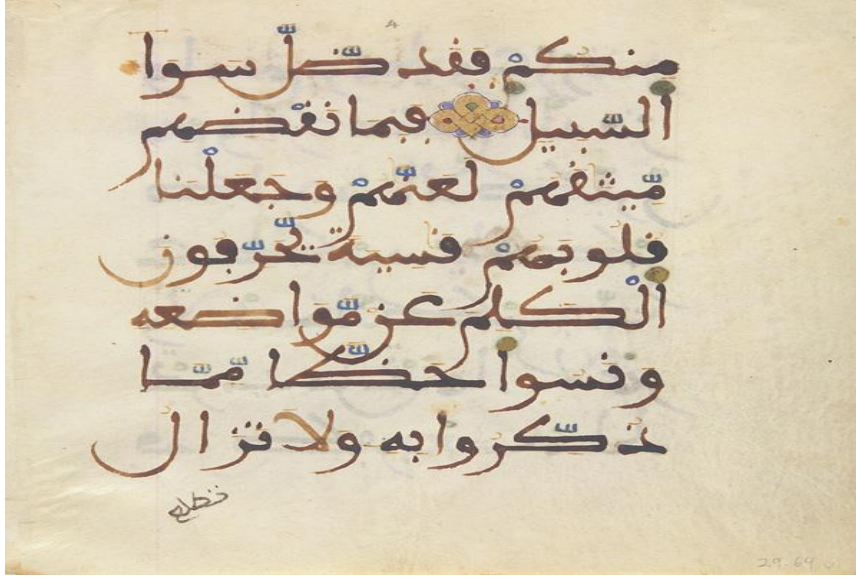 منكم فقد ضّل سوا
السّبيل فبما نقضهم
مّيثقهم لعنّهم وجعلْنا
قلوبهم قسية يحّرّفون
الْكلم عن مّواضعه
ونسوا حظّا مّمّا
ذكّروا به ولا تزال
تطلع
29.69